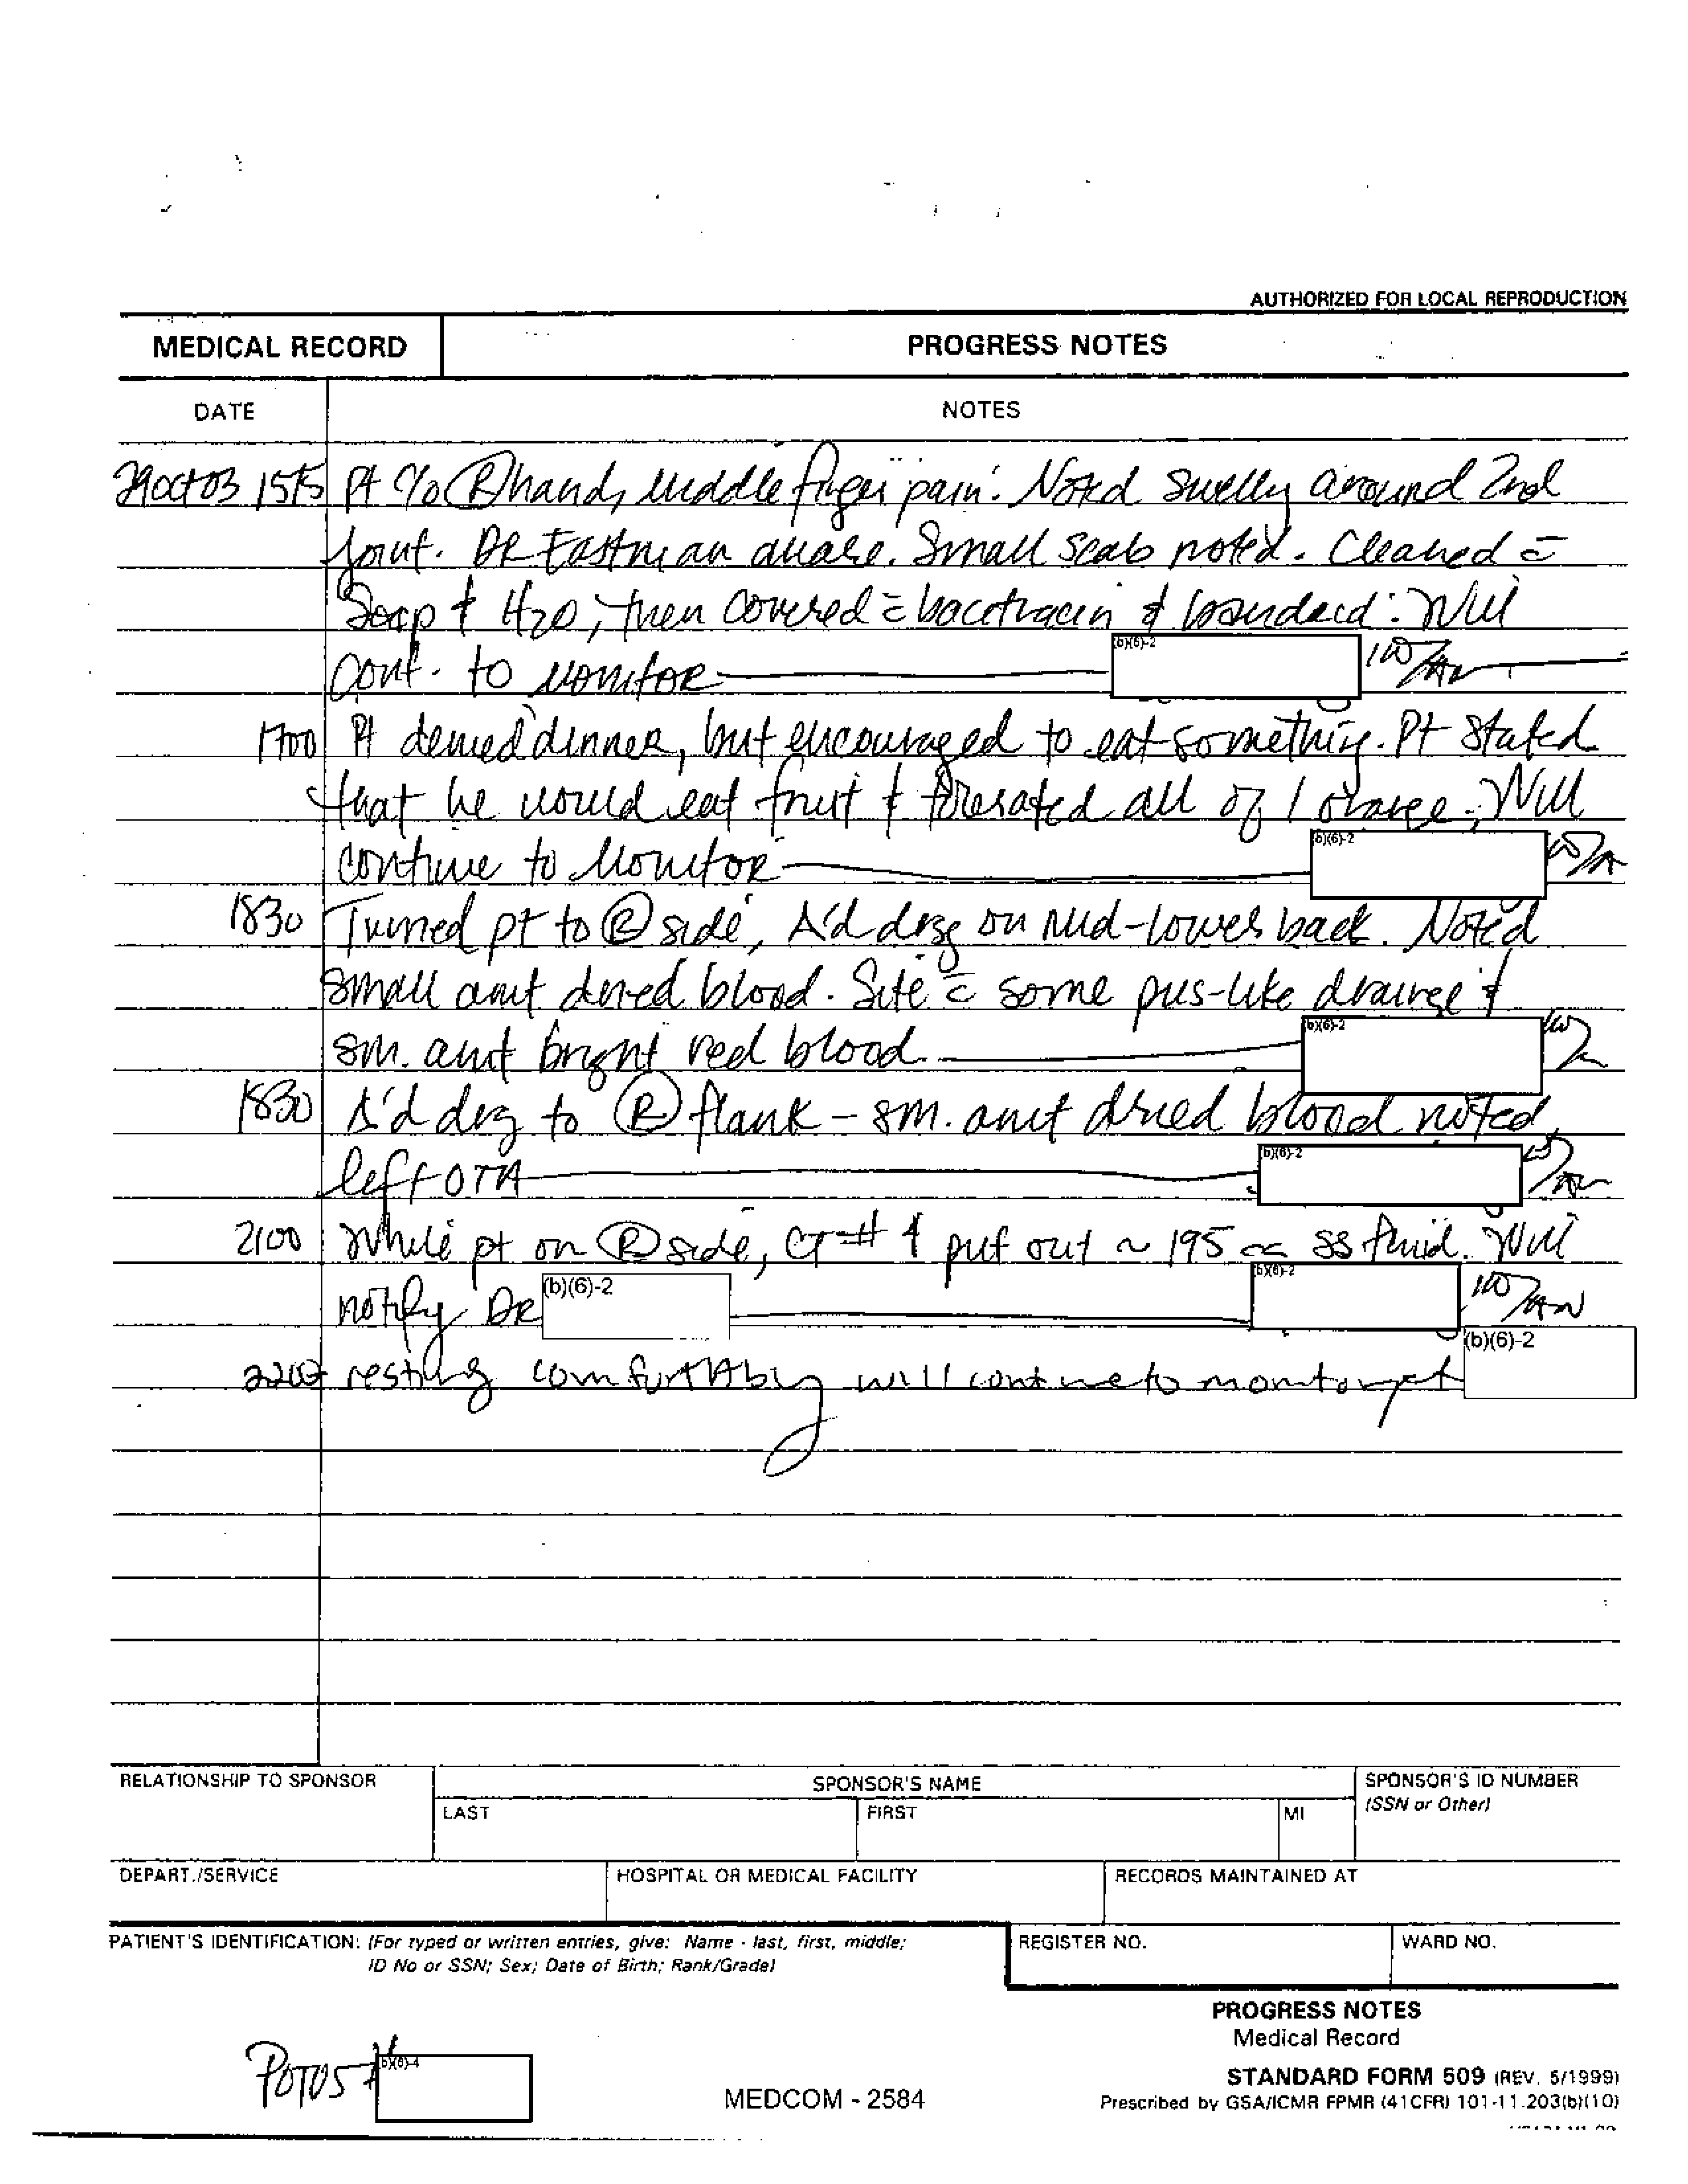 AUTHORIZED FOR LOCAL REPRODUCTION
MEDICAL RECORD PROGRESS NOTES
DATE NOTES
29Oct03 1515 Pt c/o Ⓡ hand, middle finger pain. Noted swelling around 2nd
joint. DR Eastman aware. Small scab noted. Cleaned c̄
Soap & H2O, then covered c̄ bacitracin & bandaid. Will
cont. to monitor (b)(6)-2
1700 Pt denied dinner, but encouraged to eat something. Pt stated
that he would eat fruit & tolerated all of 1 orange. Will
continue to monitor (b)(6)-2
1830 Turned pt to Ⓡ side, Δ'd drsg on mid-lower back. Noted
small amt dried blood. Site c̄ some pus-like drainge &
sm. amt bright red blood. (b)(6)-2
1830 Δ'd drg to Ⓡ flank - sm. amt dried blood noted,
left OTA (b)(6)-2
2100 While pt on Ⓡ side, CT # 1 put out ~ 195 cc SS fluid. Will
notify DR (b)(6)-2 (b)(6)-2
resting comfortably will continue to monitor pt (b)(6)-2
RELATIONSHIP TO SPONSOR SPONSOR'S NAME SPONSOR'S ID NUMBER
LAST FIRST MI (SSN or Other)
DEPART./SERVICE HOSPITAL OR MEDICAL FACILITY RECORDS MAINTAINED AT
PATIENT'S IDENTIFICATION: (For typed or written entries, give: Name - last, first, middle; REGISTER NO. WARD NO.
ID No or SSN; Sex; Date of Birth; Rank/Grade)
PROGRESS NOTES
Medical Record
STANDARD FORM 509 (REV. 5/1999)
Prescribed by GSA/ICMR FPMR (41CFR) 101-11.203(b)(10)
POTUS # (b)(6)-4
MEDCOM - 2584